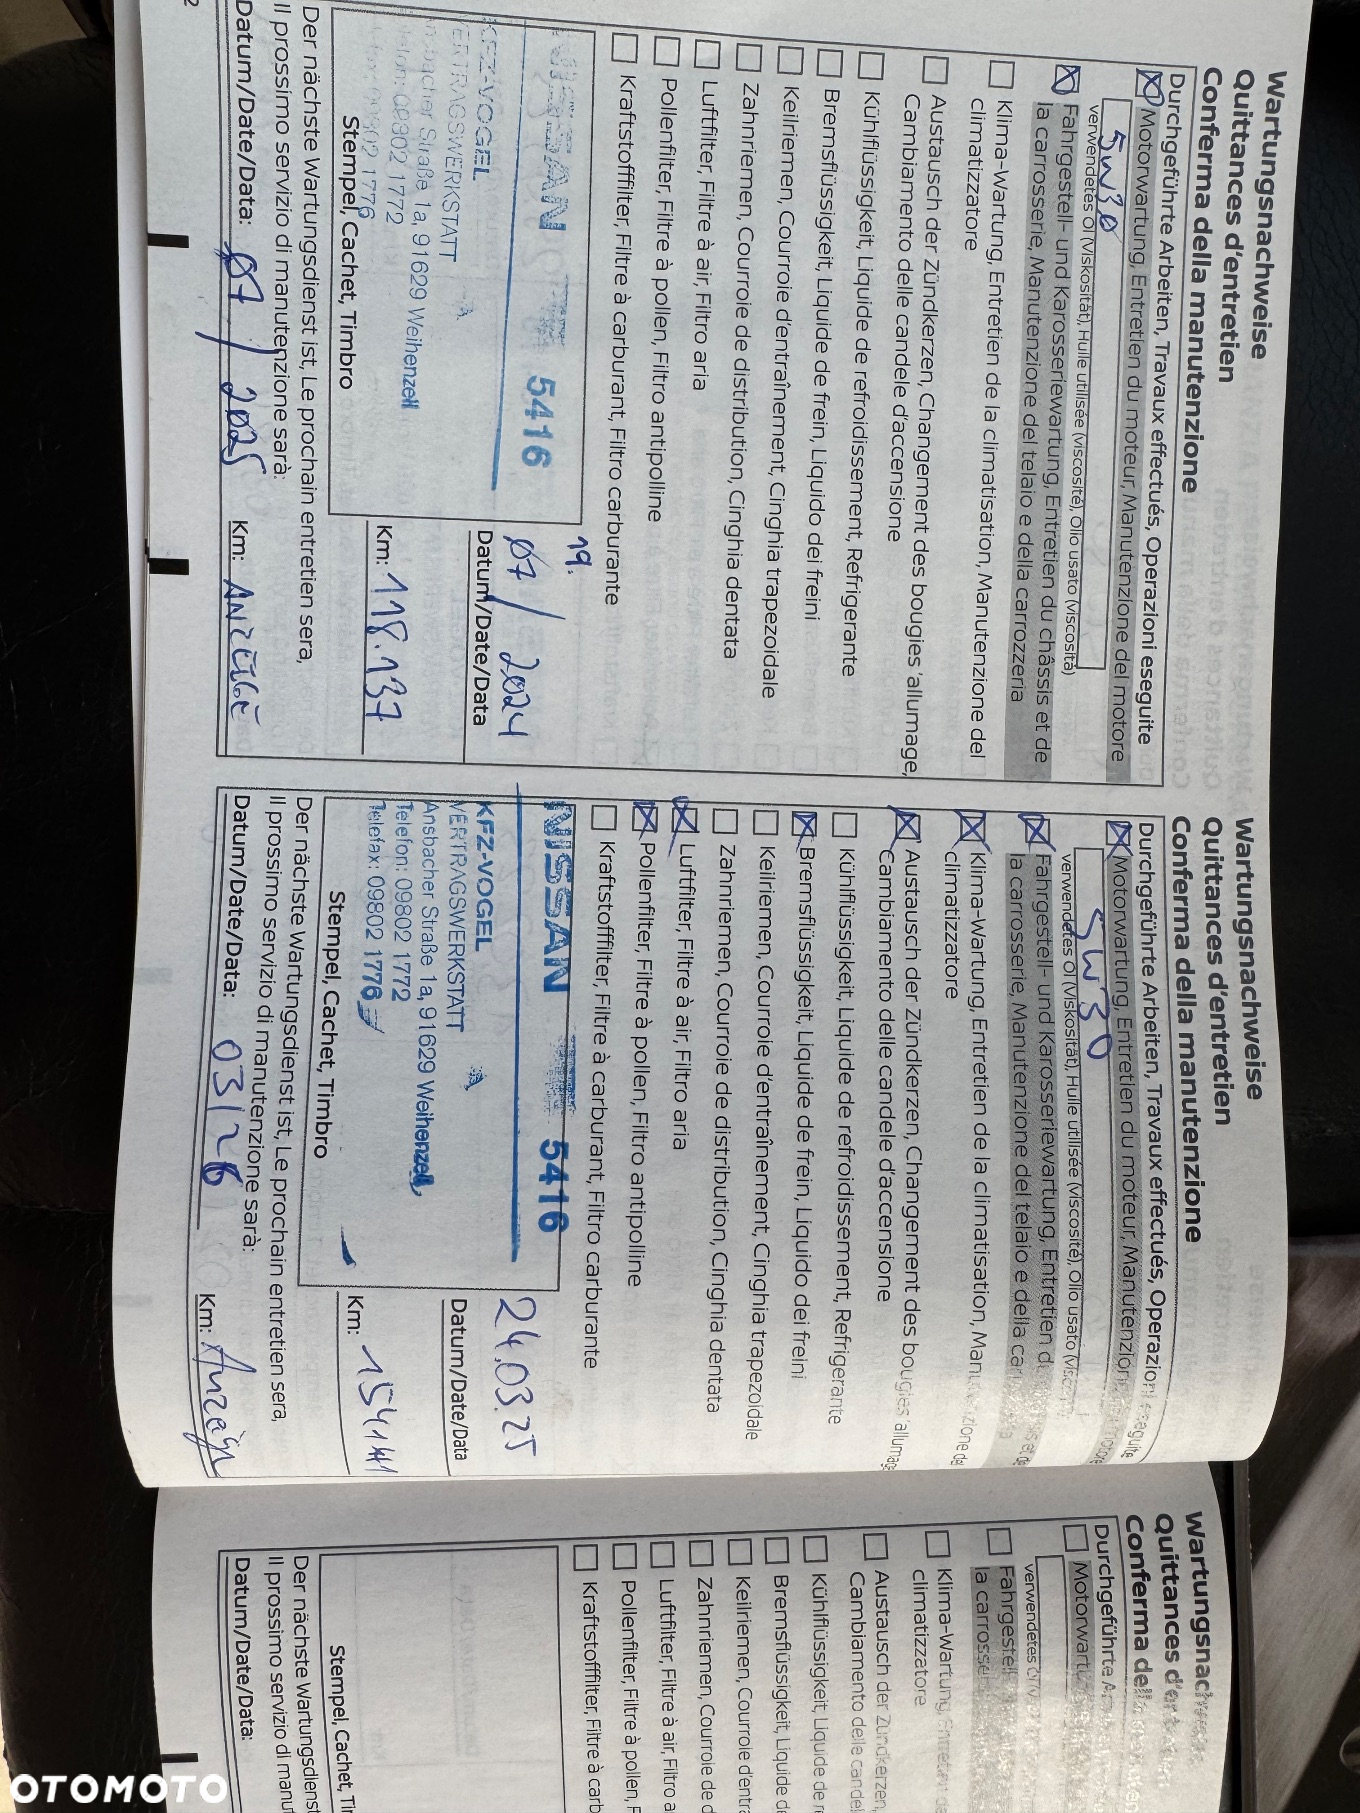 Wartungsnachweise
Quittances d'entretien
Conferma della manutenzione
Durchgeführte Arbeiten, Travaux effectués, Operazioni eseguite
Motorwartung, Entretien du moteur, Manutenzione del motore
5W30
verwendetes Öl (Viskosität), Huile utilisée (viscosité), Olio usato (viscosità)
Fahrgestell- und Karosseriewartung, Entretien du châssis et de
la carrosserie, Manutenzione del telaio e della carrozzeria
Klima-Wartung, Entretien de la climatisation, Manutenzione del
climatizzatore
Austausch der Zündkerzen, Changement des bougies 'allumage,
Cambiamento delle candele d'accensione
Kühlflüssigkeit, Liquide de refroidissement, Refrigerante
Bremsflüssigkeit, Liquide de frein, Liquido dei freini
Keilriemen, Courroie d'entraînement, Cinghia trapezoidale
Zahnriemen, Courroie de distribution, Cinghia dentata
Luftfilter, Filtre à air, Filtro aria
Pollenfilter, Filtre à pollen, Filtro antipolline
Kraftstofffilter, Filtre à carburant, Filtro carburante
NISSAN 5416
KFZ-VOGEL
VERTRAGSWERKSTATT
Ansbacher Straße 1a, 91629 Weihenzell
Telefon: 09802 1772
Telefax: 09802 1776
19.
07/2024
Datum/Date/Data
Km: 118.137
Stempel, Cachet, Timbro
Der nächste Wartungsdienst ist, Le prochain entretien sera,
Il prossimo servizio di manutenzione sarà:
Datum/Date/Data: 07/2025 Km: ANZEIGE
2
Wartungsnachweise
Quittances d'entretien
Conferma della manutenzione
Durchgeführte Arbeiten, Travaux effectués, Operazioni eseguite
Motorwartung, Entretien du moteur, Manutenzione
5W30
verwendetes Öl (Viskosität), Huile utilisée (viscosité), Olio usato
Fahrgestell- und Karosseriewartung, Entretien
la carrosserie, Manutenzione del telaio e della
Klima-Wartung, Entretien de la climatisation, Manutenzione del
climatizzatore
Austausch der Zündkerzen, Changement des bougies 'allumage
Cambiamento delle candele d'accensione
Kühlflüssigkeit, Liquide de refroidissement, Refrigerante
Bremsflüssigkeit, Liquide de frein, Liquido dei freini
Keilriemen, Courroie d'entraînement, Cinghia trapezoidale
Zahnriemen, Courroie de distribution, Cinghia dentata
Luftfilter, Filtre à air, Filtro aria
Pollenfilter, Filtre à pollen, Filtro antipolline
Kraftstofffilter, Filtre à carburant, Filtro carburante
NISSAN 5416
KFZ-VOGEL
VERTRAGSWERKSTATT
Ansbacher Straße 1a, 91629 Weihenzell
Telefon: 09802 1772
Telefax: 09802 1776
24.03.25
Datum/Date/Data
Km: 154141
Stempel, Cachet, Timbro
Der nächste Wartungsdienst ist, Le prochain entretien sera,
Il prossimo servizio di manutenzione sarà:
Datum/Date/Data: 03/26 Km: Anzeige
Quittances
Conferma
Durchgeführte
verwendetes
Klima-Wartung,
climatizzatore
Austausch der Zündkerzen,
Cambiamento delle
Kühlflüssigkeit, Liquide de
Bremsflüssigkeit, Liquide
Keilriemen, Courroie
Zahnriemen, Courroie
Luftfilter, Filtre à air, Filtro
Pollenfilter, Filtre à pollen,
Kraftstofffilter, Filtre à
Stempel, Cachet,
Der nächste Wartungsdienst
Il prossimo servizio di
Datum/Date/Data:
OTOMOTO